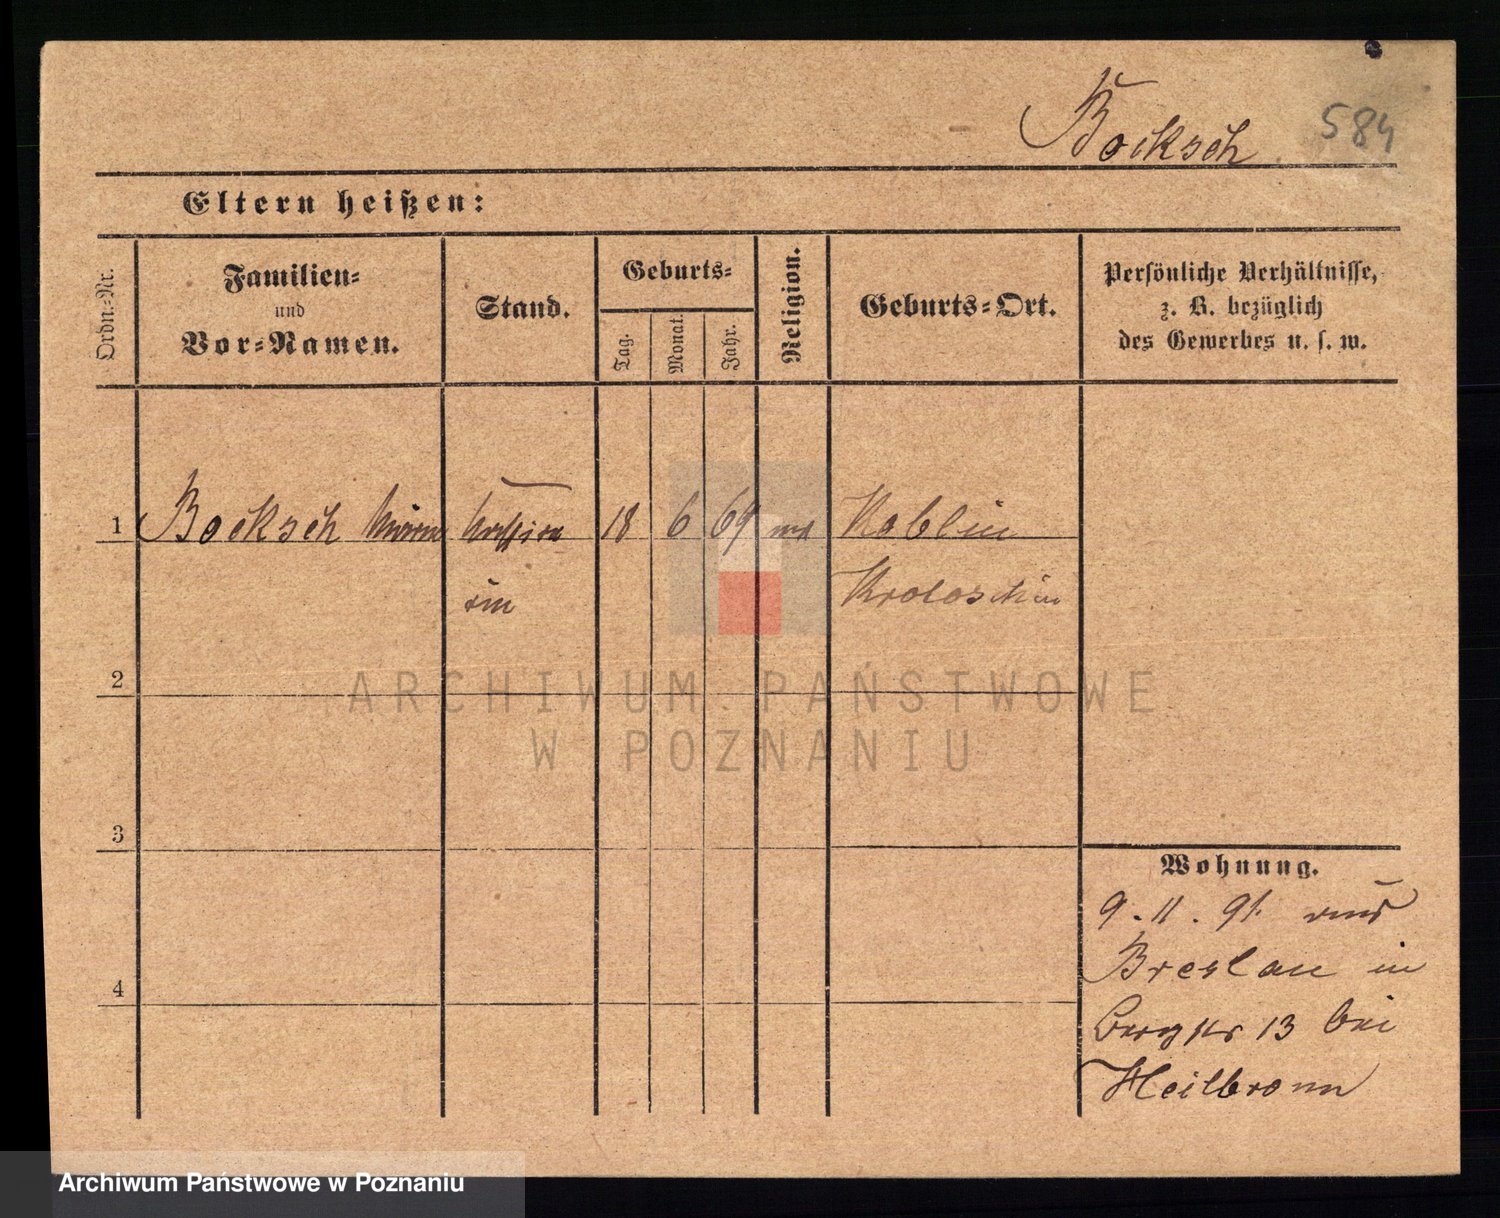 Bocksch
584
Eltern heißen:
Ordn.-Nr.
Familien-
und
Vor-Namen.
Stand.
Geburts-
Tag.
Monat.
Jahr.
Religion.
Geburts-Ort.
Persönliche Verhältnisse,
z. B. bezüglich
des Gewerbes u. s. w.
1 Bocksch 18 6 69 Koblin
Krotoschin
2
3
4
Wohnung.
9. 11. 91. aus
Breslau in
Bergstr 13 bei
Heilbronn
ARCHIWUM PAŃSTWOWE
W POZNANIU
Archiwum Państwowe w Poznaniu